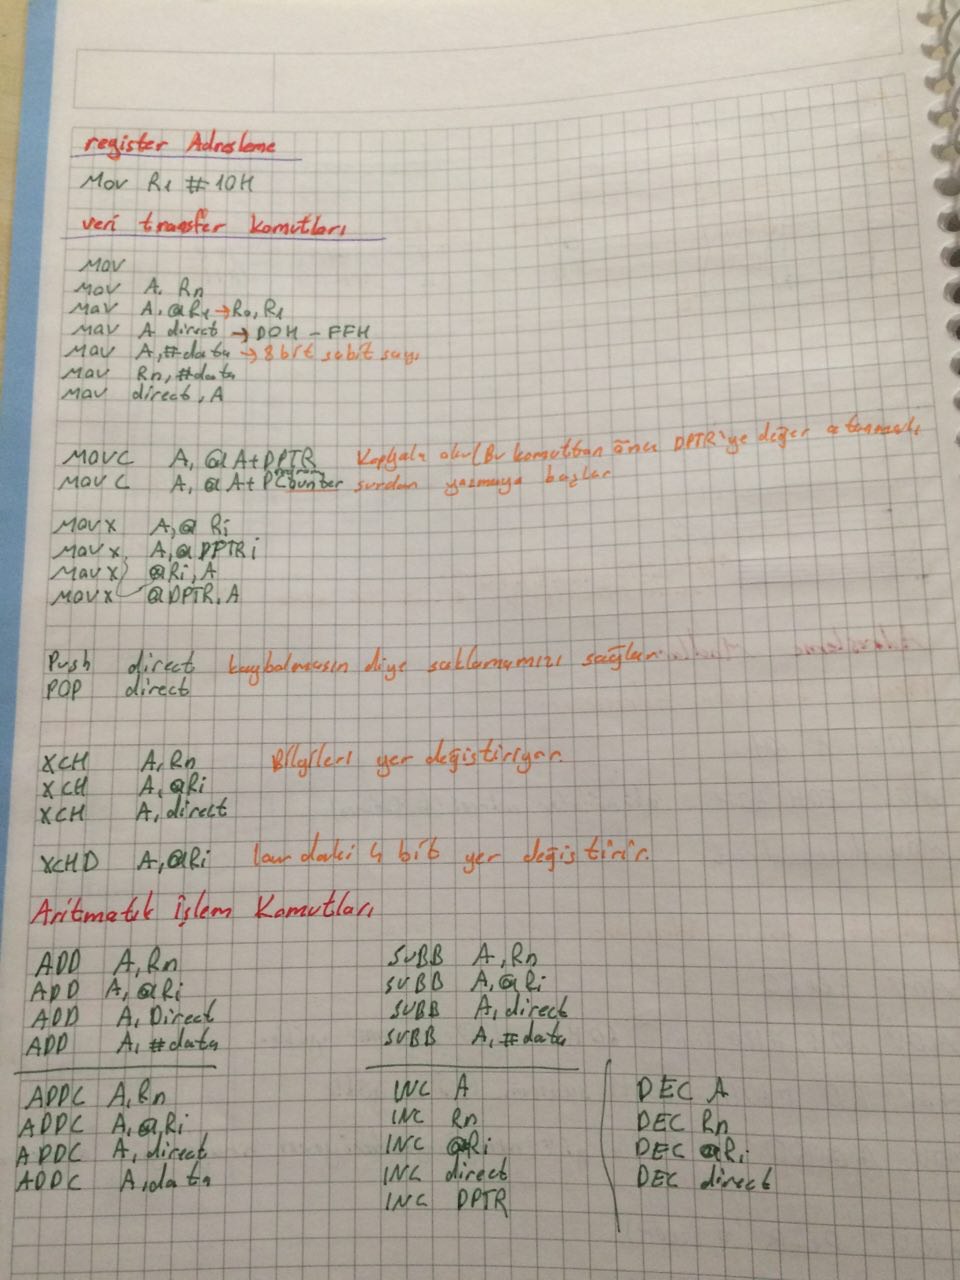 register Adresleme
Mov R1 #10H
veri transfer komutları
MOV
MOV A, Rn
MOV A, @R1 → R0, R1
MOV A direct → D0H - FFH
MOV A, #data → 8 bit sabit sayı
MOV Rn, #data
MOV direct, A
MOVC A, @A+DPTR Kopyala oku (Bu komuttan önce DPTR'ye değer atanmalı
MOVC A, @A+PCounter surdan yazmaya başlar
MOVX A, @Ri
MOVX A, @DPTRi
MOVX @Ri, A
MOVX @DPTR, A
Push direct kaybolmasın diye saklamamızı sağlar
POP direct
XCH A, Rn Bilgileri yer değiştiriyor.
XCH A, @Ri
XCH A, direct
XCHD A, @Ri low daki 4 bit yer değiştirir.
Aritmatik İşlem Komutları
ADD A, Rn SUBB A, Rn
ADD A, @Ri SUBB A, @Ri
ADD A, Direct SUBB A, direct
ADD A, #data SUBB A, #data
ADDC A, Rn INC A DEC A
ADDC A, @Ri INC Rn DEC Rn
ADDC A, direct INC @Ri DEC @Ri
ADDC A, data INC direct DEC direct
INC DPTR